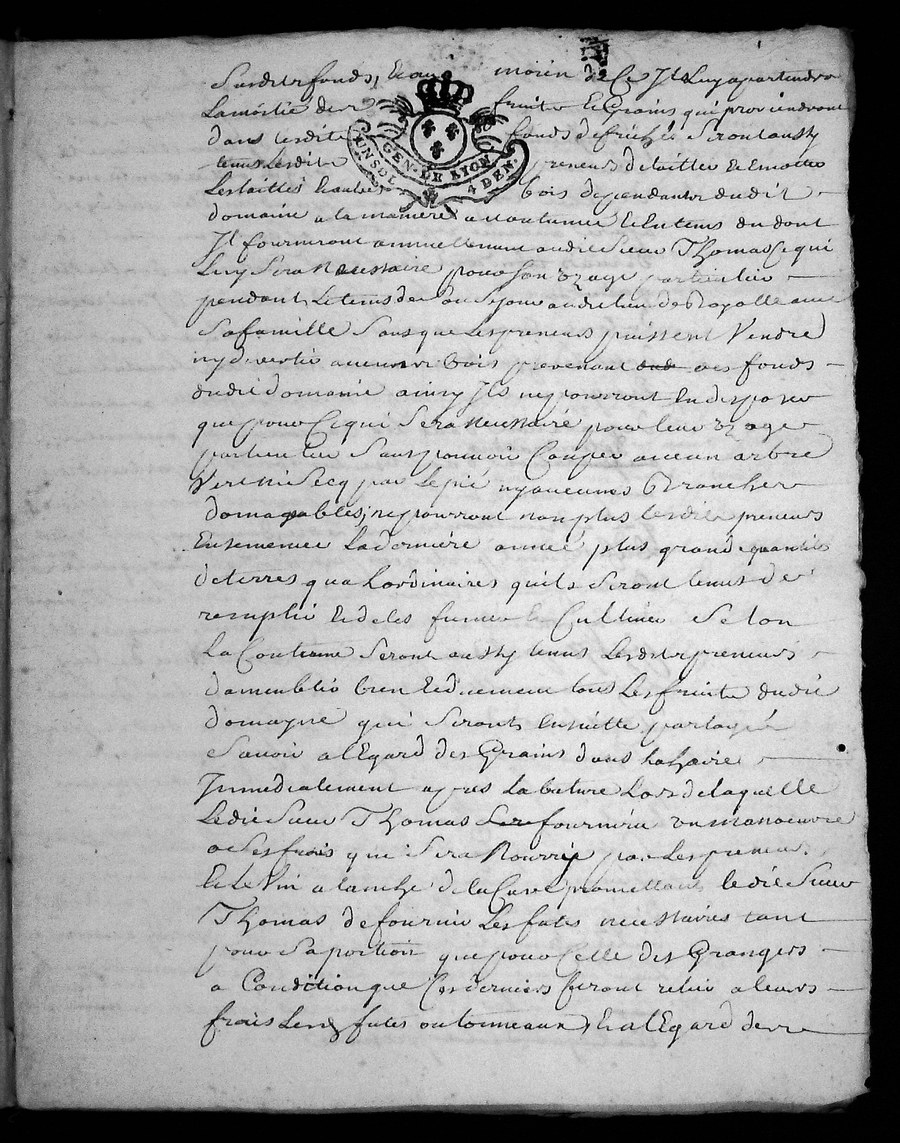 Susdits fonds, Et au moien de Ce Il Luy apartiendra
La moitié des fruits & Grains qui proviendront
dans lesdits fonds defrichés Seront aussy
tenus Lesdits preneurs de tailler
Les taillés bois dependants dudit
domaine a la maniere acoutumée En tems du dont
Il fourniront annuellement audit Sieur Thomas Ce qui
Luy Sera Necessaire pour Son uzage particulier
pendant Le tems de Son Sejour audit lieu de Royalle avec
Sa famille Sans que Les preneurs puissent Vendre
ny divertir aucuns bois provenant des fonds
dudit domaine ainsy Ils ne pourront En disposer
que pour Ce qui Sera Necessaire pour leur uzage
particulier Sans pouvoir Couper aucun arbre
Vert ni Secq par Le pié ny aucunes Branches
domagables, ne pourront non plus lesdits preneurs
Ensemencer La derniere année plus grande quantité
de terres qua Lordinaires quils Seront tenus de
remplir & de les fumer & Cultiver Selon
La Coutume Seront aussy tenus Lesdits preneurs
dameublir bien & duement tous Les fruits dudit
domayne qui Seronts Ensuitte partagés
Savoir a lEgard des Grains dans
Immediatement apres La bature Lors de laquelle
Ledit Sieur Thomas fournira un manoeuvre
a Ses frais qui Sera Nourry par Les preneurs
Et Le Vin a lanche de la Cuve promettant ledit Sieur
Thomas de fournir Les futes necessaires tant
pour Sa portion que pour Celle des Grangers
a Condition que Ces derniers feront relier a leurs
frais Les futes ou tonneaux, Et a lEgard des